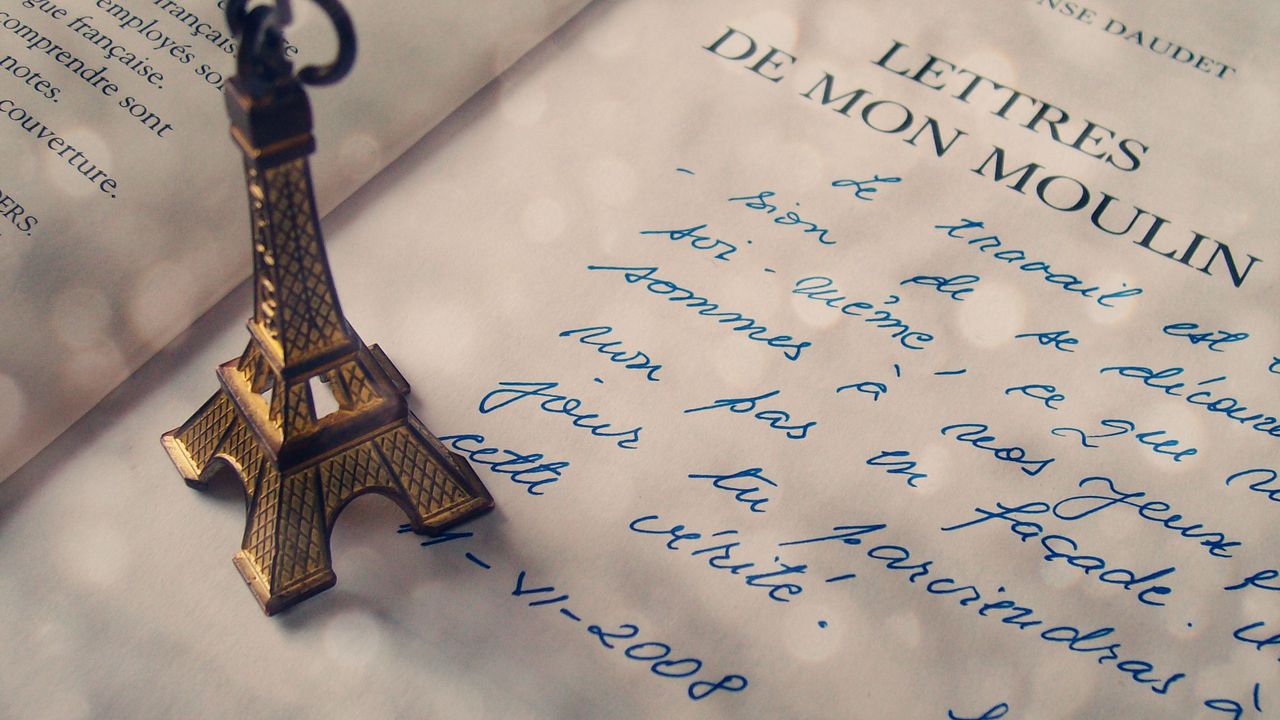 française
employés son
gue française.
comprendre sont
notes.
couverture.
DERS.
NSE DAUDET
LETTRES
DE MON MOULIN
Le travail est
- sion de se découvr
soi-même, ce que
sommes à nos yeux
non pas en façade.
jour tu parviendras à
cette vérité.
VI-2008